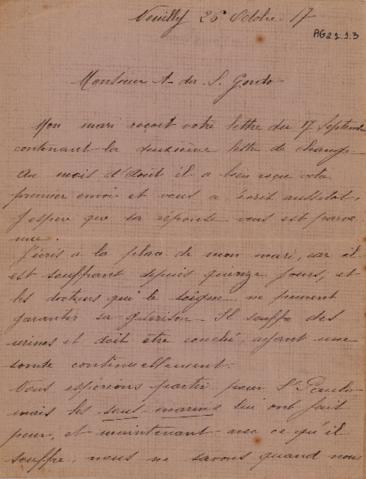 Neuilly 26 Octobre 17
AG 2 2. 2. 3
Monsieur A. dos S. Gordo
Mon mari reçoit votre lettre du 17 Septembre
contenant la deuxième lettre de change.
Au mois d'Août il a bien reçu votre
premier envoi et vous a écrit aussitôt.
J'espère que sa réponse vous est parve
nue.
J'écris à la place de mon mari, car il
est souffrant depuis quinze jours, et
les docteurs qui le soigne ne peuvent
garantir sa guérison. Il souffre des
urines et doit être couché, ayant une
sonde continuellement.
Nous espérions partir pour St Paulo
mais les sous-marins lui ont fait
peur, et maintenant avec ce qu'il
souffre, nous ne savons quand nous